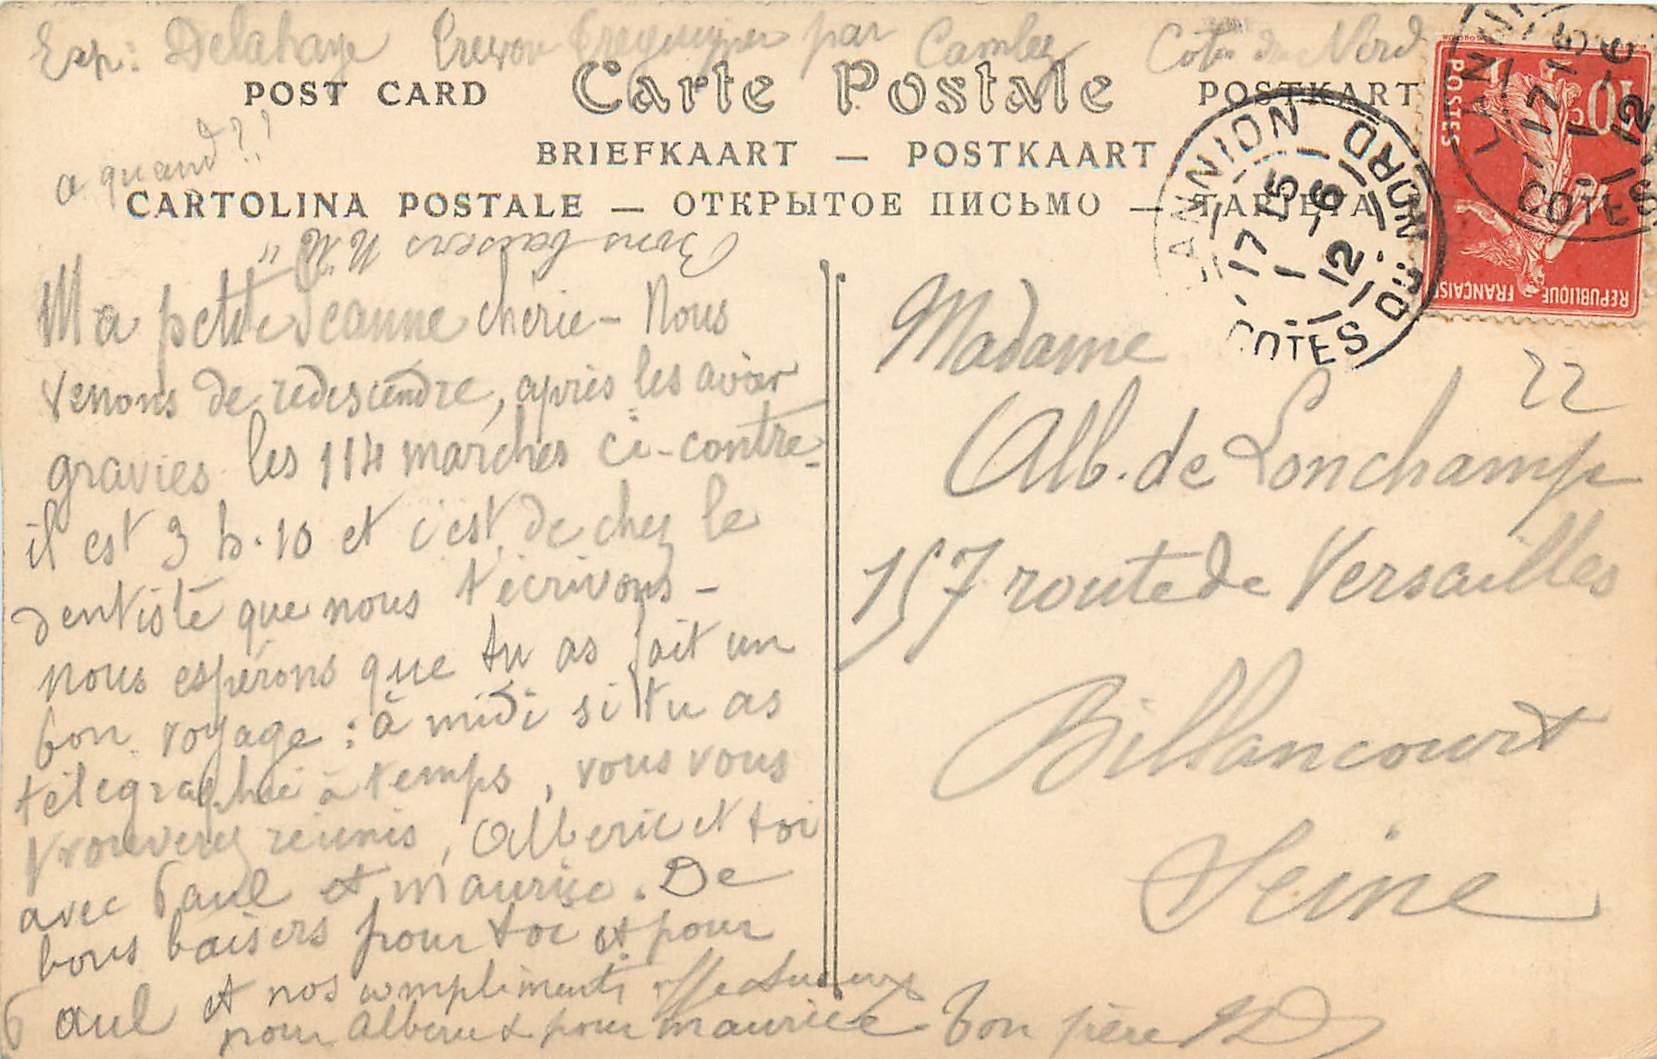 Exp: Delahaye Trevou Treguignec par Camlez Côtes du Nord
POST CARD Carte Postale POSTKART
BRIEFKAART — POSTKAART
a quand??
CARTOLINA POSTALE — ОТКРЫТОЕ ПИСЬМО — TARJETA
Bons baisers
Ma petite Jeanne chérie - Nous
venons de redescendre, après les avoir
gravies les 114 marches ci-contre -
il est 3 h. 10 et c'est de chez le
dentiste que nous t'écrivons -
nous espérons que tu as fait un
bon voyage : à midi si tu as
télégraphié à temps, vous vous
trouverez réunis, Alberic et toi
avec Paul et Maurice. De
bons baisers pour toi et pour
Paul et nos compliments affectueux
pour Alberic & pour Maurice Ton père
Madame
Alb. de Lonchamp
157 route de Versailles
Billancourt
Seine
22
LANNION
17 15
1 - 6
12
COTES DU NORD
LANNION
17 15
1 - 6
12
COTES
10c
POSTES
REPUBLIQUE FRANÇAISE